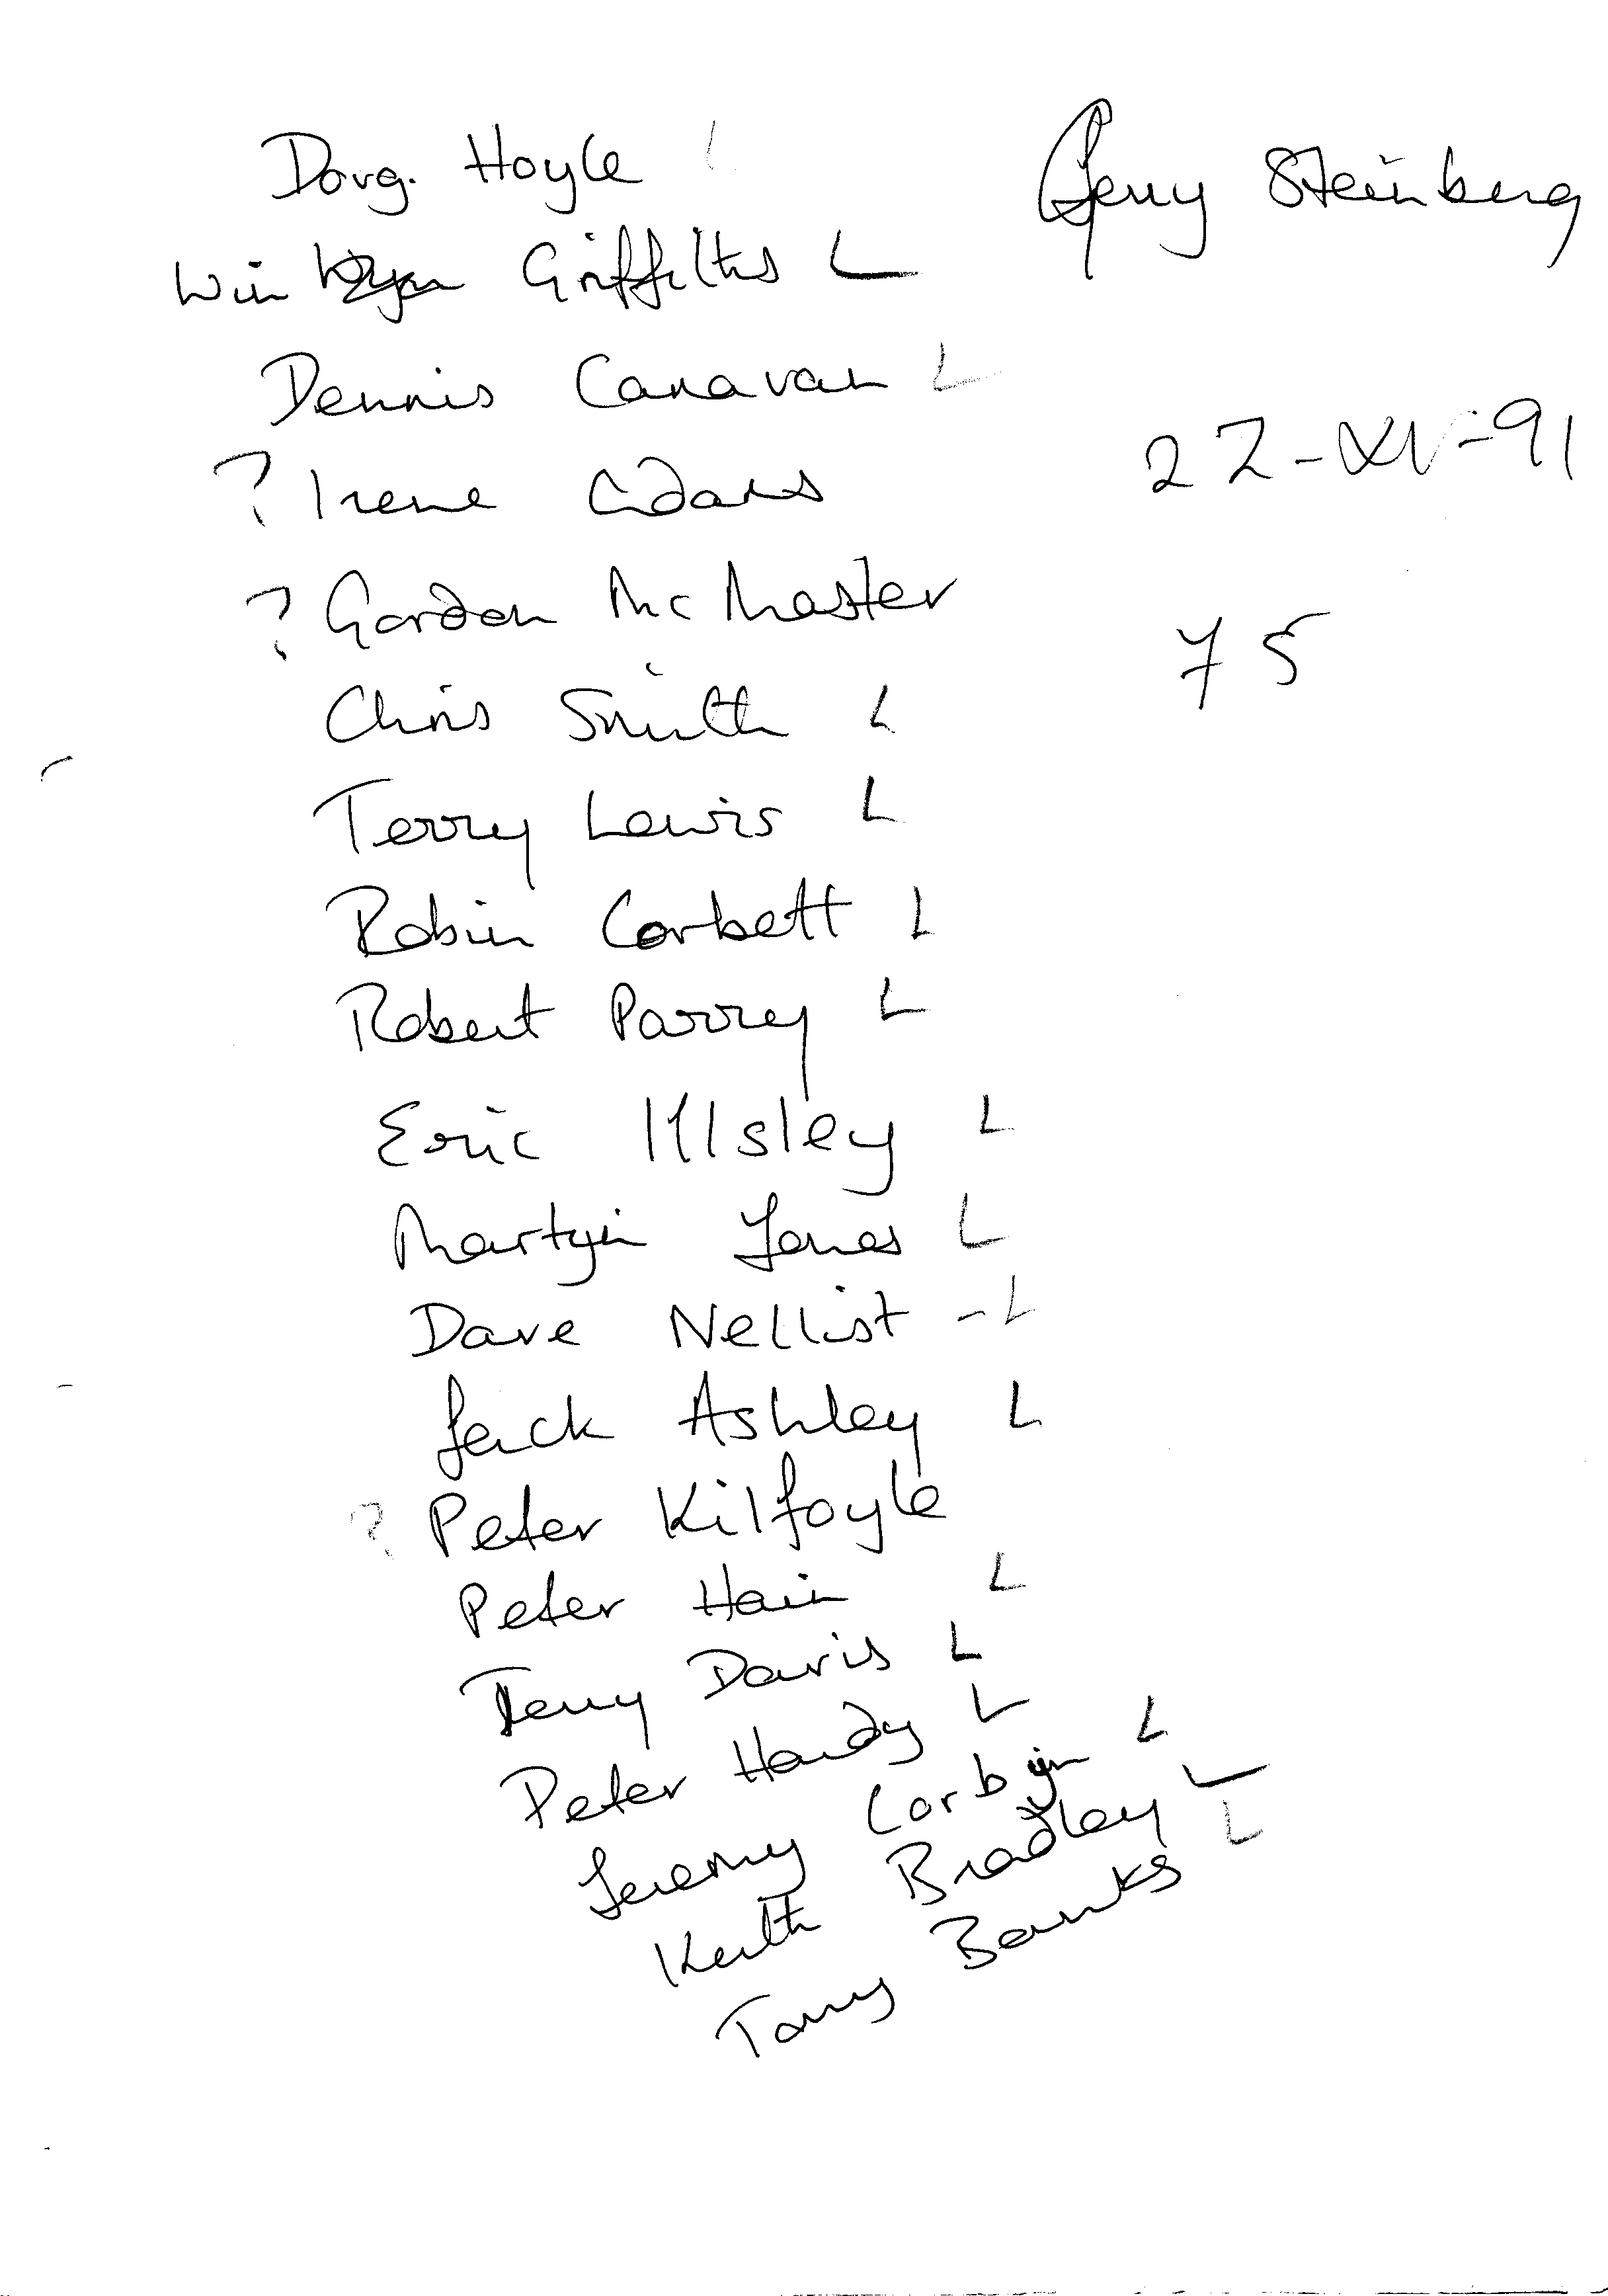 Doug. Hoyle L
Win Griffiths L
Dennis Canavan L
? Irene Adams
? Gordon McMaster
Chris Smith L
Terry Lewis L
Robin Corbett L
Robert Parry L
Eric Illsley L
Martyn Jones L
Dave Nellist - L
Jack Ashley L
? Peter Kilfoyle
Peter Hain L
Terry Davis L
Peter Hardy L
Jeremy Corbyn L
Keith Bradley L
Tony Banks L
Gerry Steinberg
22-XI-91
75